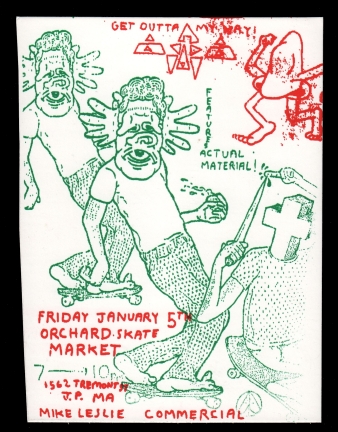 GET OUTTA MY WAY!
FEATURE
ACTUAL
MATERIAL!
FRIDAY JANUARY 5TH
ORCHARD SKATE
MARKET
7—10PM
1562 TREMONT ST
J.P. MA
MIKE LESLIE COMMERCIAL